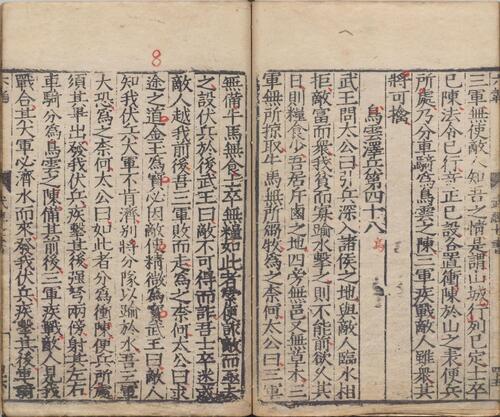 三軍無使敵人知吾之情是謂山城行列已定士卒
已陳法令已行奇正已設各置衝陳於山之表便兵
所處乃分車騎爲烏雲之陳三軍疾戰敵人雖衆其
將可擒
烏雲澤兵第四十八
武王問太公曰引兵深入諸侯之地與敵人臨水相
拒敵富而衆我貧而寡踰水擊之則不能前欲久其
日則糧食少吾居斥鹵之地四旁無邑又無草木三
軍無所掠取牛馬無所芻牧爲之柰何太公曰三軍
8
無備牛馬無食士卒無糧如此者索便詐敵而亟去
之設伏兵於後武王曰敵不可得而詐吾士卒迷惑
敵人越我前後吾三軍敗而走爲之柰何太公曰求
途之道金玉爲寶必因敵使精微爲寶武王曰敵人
知我伏兵大軍不肯濟別將分隊以踰於水吾三軍
大恐爲之柰何太公曰如此者分爲衝陳便兵所處
須其畢出發我伏兵疾擊其後强弩兩傍射其左右
車騎分爲烏雲之陳備其前後三軍疾戰敵人見我
戰合其大軍必濟水而來發我伏兵疾擊其後車騎